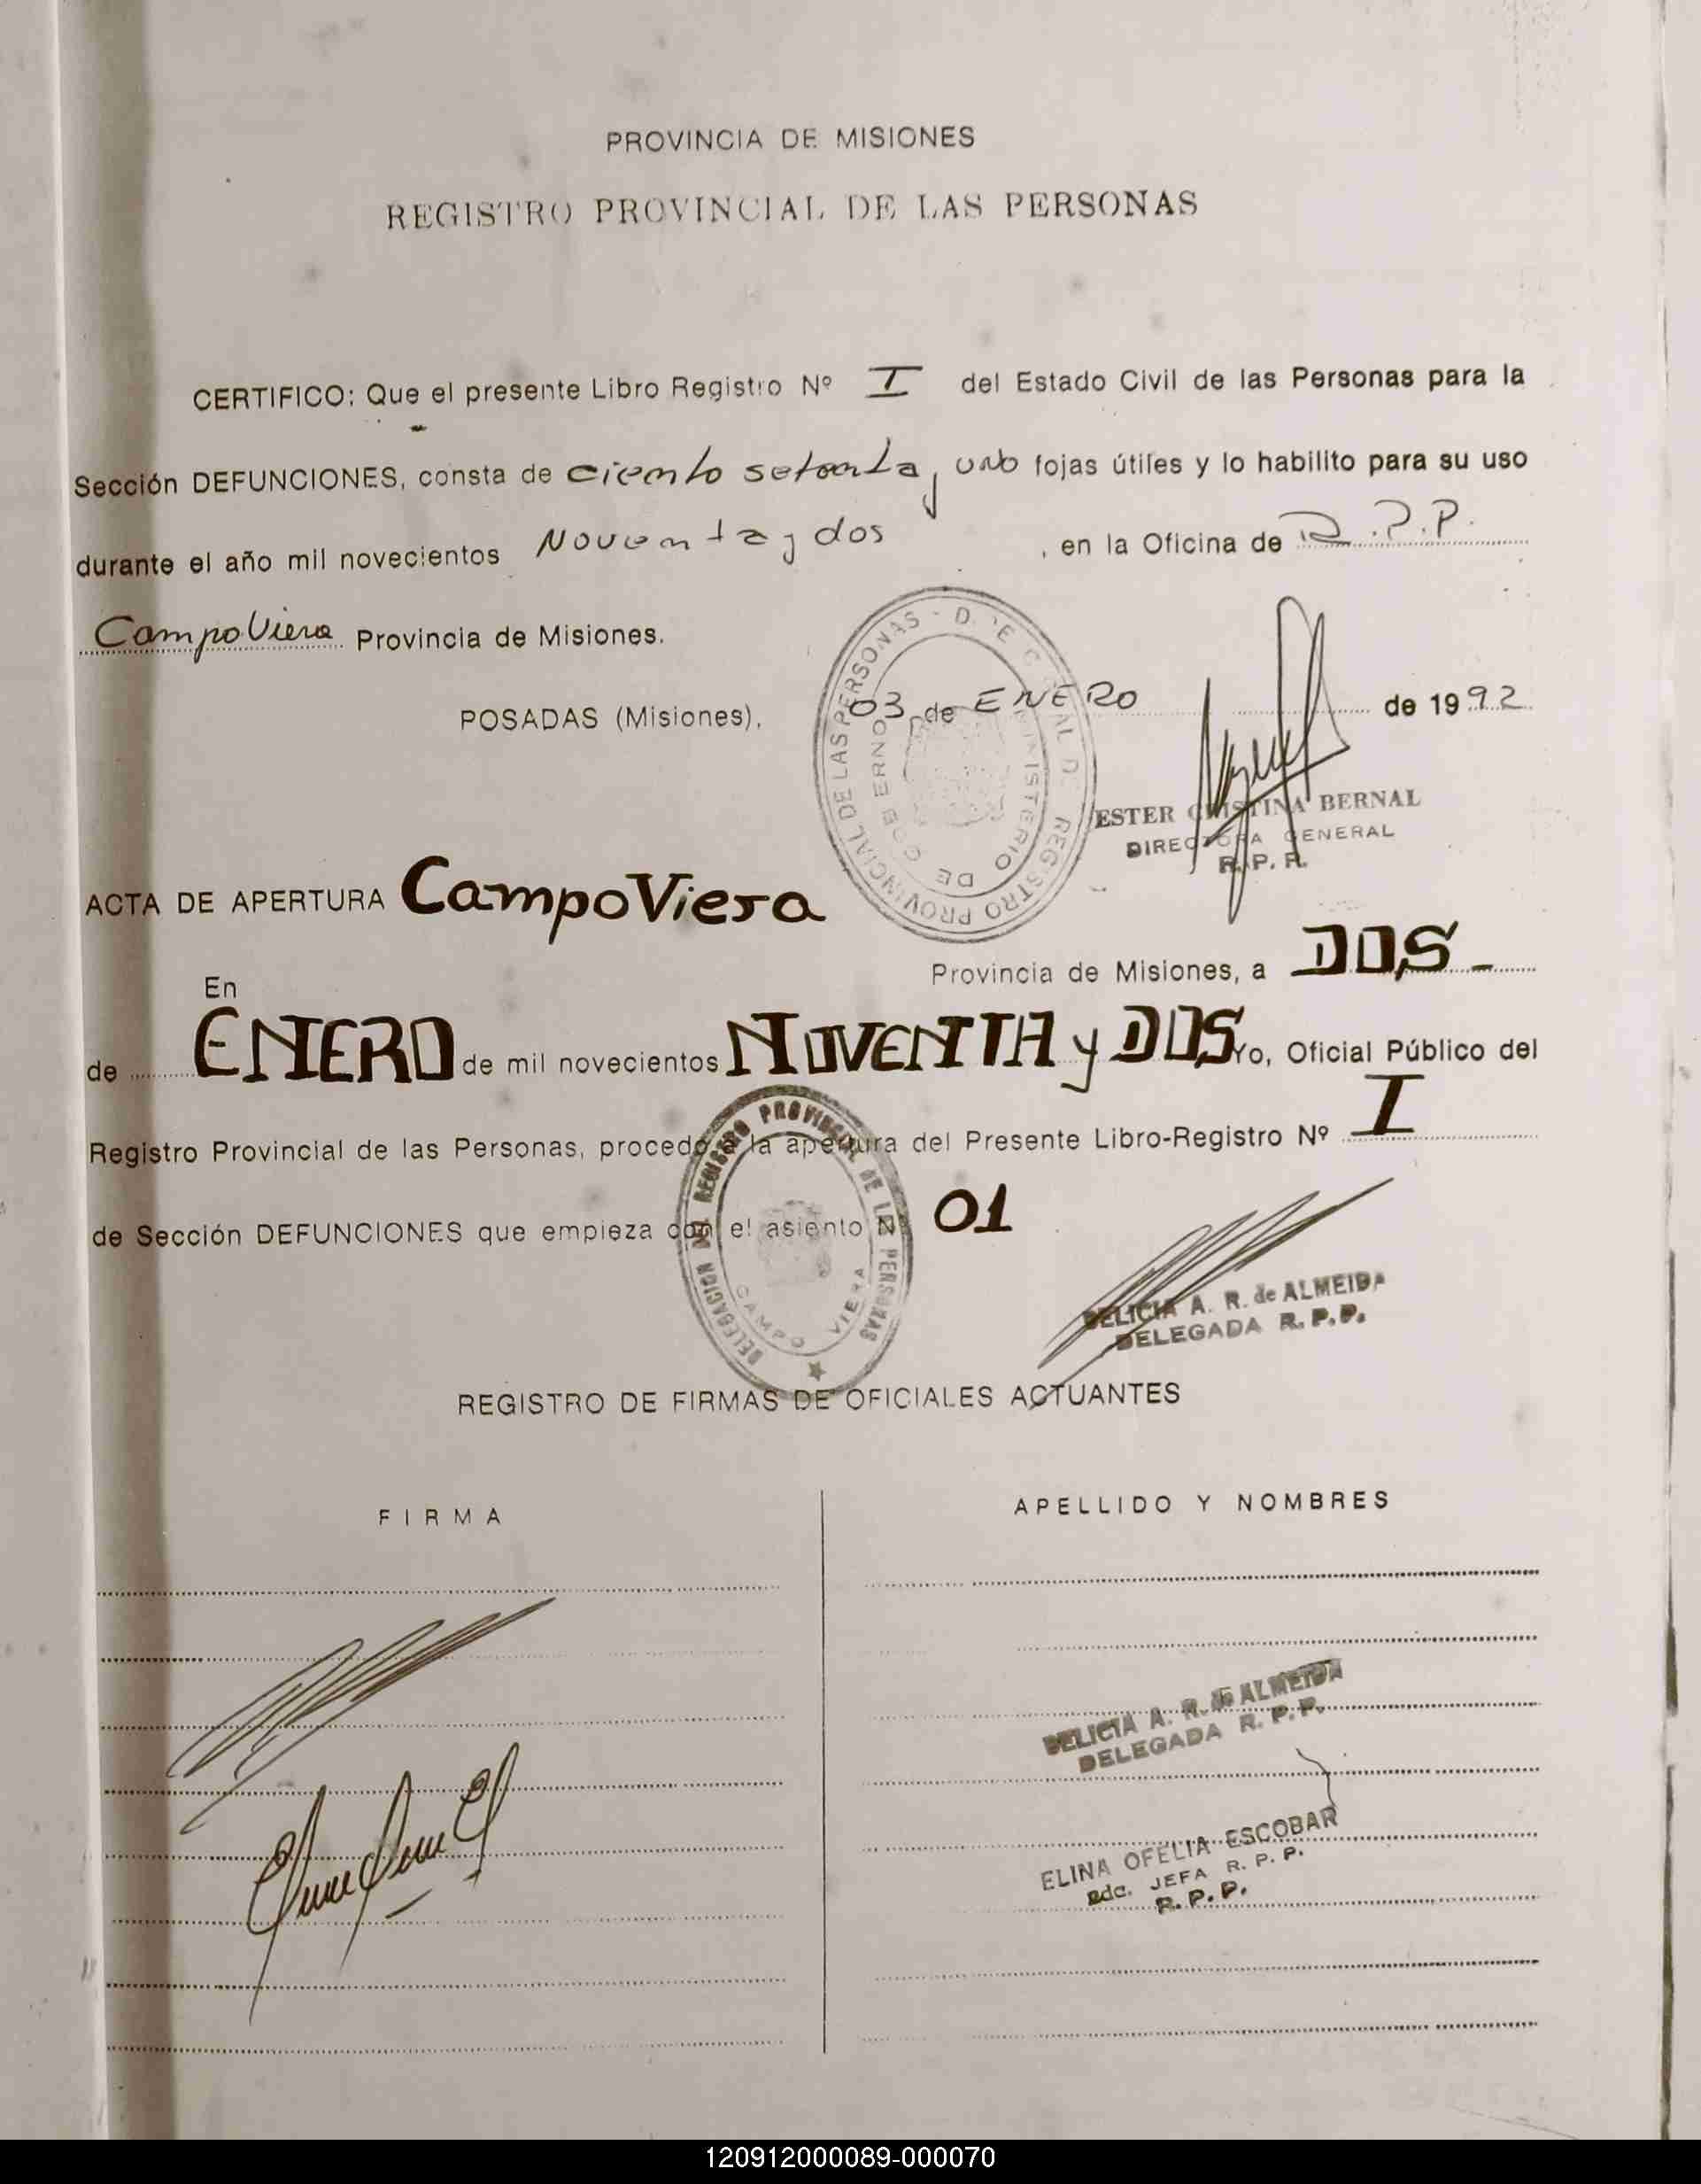 PROVINCIA DE MISIONES
REGISTRO PROVINCIAL DE LAS PERSONAS
CERTIFICO: Que el presente Libro Registro Nº I del Estado Civil de las Personas para la
Sección DEFUNCIONES, consta de ciento setenta y uno fojas útiles y lo habilito para su uso
durante el año mil novecientos Noventa y dos , en la Oficina de R.P.P.
Campo Viera Provincia de Misiones.
POSADAS (Misiones), 03 de ENERO de 1992
REGISTRO PROVINCIAL DE LAS PERSONAS
MINISTERIO DE GOBIERNO
ESTER CRISTINA BERNAL
DIRECTORA GENERAL
R. P. P.
ACTA DE APERTURA Campo Viera
En Provincia de Misiones, a DOS
de ENERO de mil novecientos NOVENTA y DOS Yo, Oficial Público del
Registro Provincial de las Personas, procedo a la apertura del Presente Libro-Registro Nº I
de Sección DEFUNCIONES que empieza con el asiento Nº 01
DELEGACION DEL REGISTRO PROVINCIAL DE LAS PERSONAS
CAMPO VIERA
DELICIA A. R. de ALMEIDA
DELEGADA R. P. P.
REGISTRO DE FIRMAS DE OFICIALES ACTUANTES
FIRMA APELLIDO Y NOMBRES
DELICIA A. R. de ALMEIDA
DELEGADA R. P. P.
ELINA OFELIA ESCOBAR
JEFA R. P. P.
R. P. P.
120912000089-000070